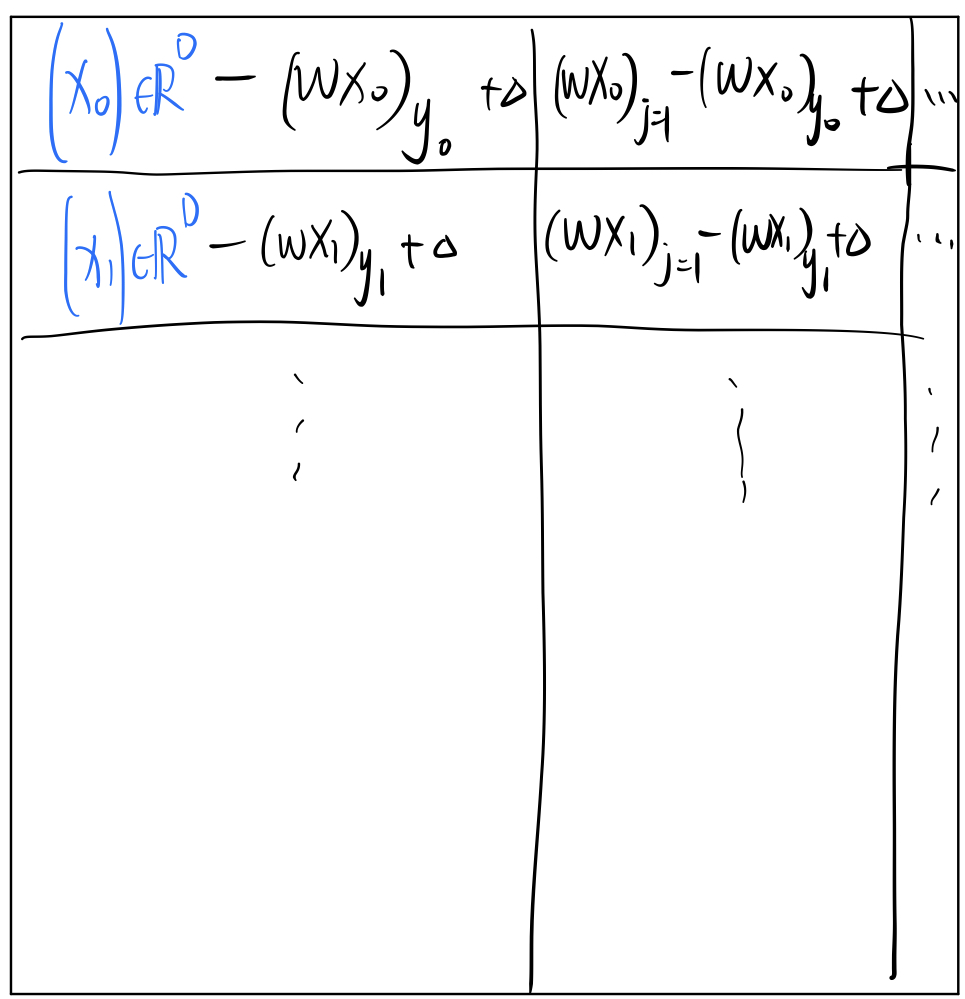 (x₀) ∈ ℝᴰ − (Wx₀)_{y₀} + Δ (Wx₀)_{j=1} − (Wx₀)_{y₀} + Δ ...
(x₁) ∈ ℝᴰ − (Wx₁)_{y₁} + Δ (Wx₁)_{j=1} − (Wx₁)_{y₁} + Δ ...